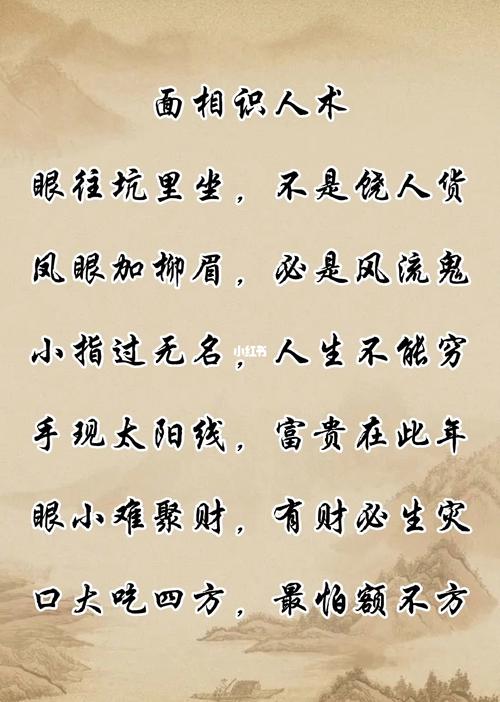 面相识人术
眼往坑里坐，不是饶人货
凤眼加柳眉，必是风流鬼
小指过无名，人生不能穷
小红书
手现太阳线，富贵在此年
眼小难聚财，有财必生灾
口大吃四方，最怕额不方